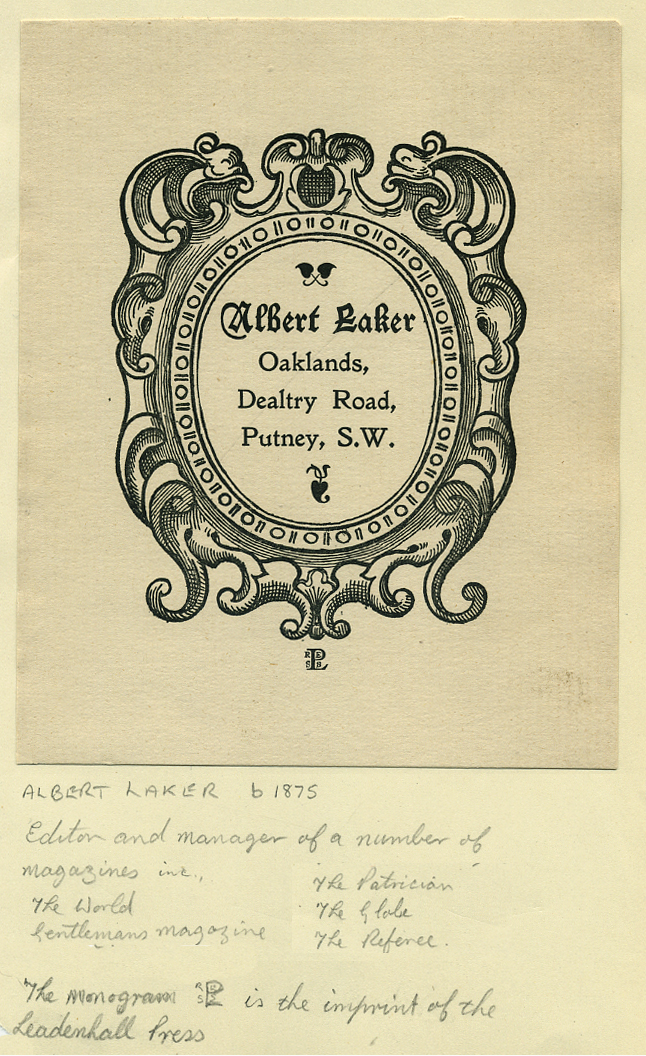 Albert Laker
Oaklands,
Dealtry Road,
Putney, S.W.
ALBERT LAKER b 1875
Editor and manager of a number of
magazines inc.,
The World
Gentlemans magazine
The Patrician
The Globe
The Referee.
The Monogram is the imprint of the
Leadenhall Press